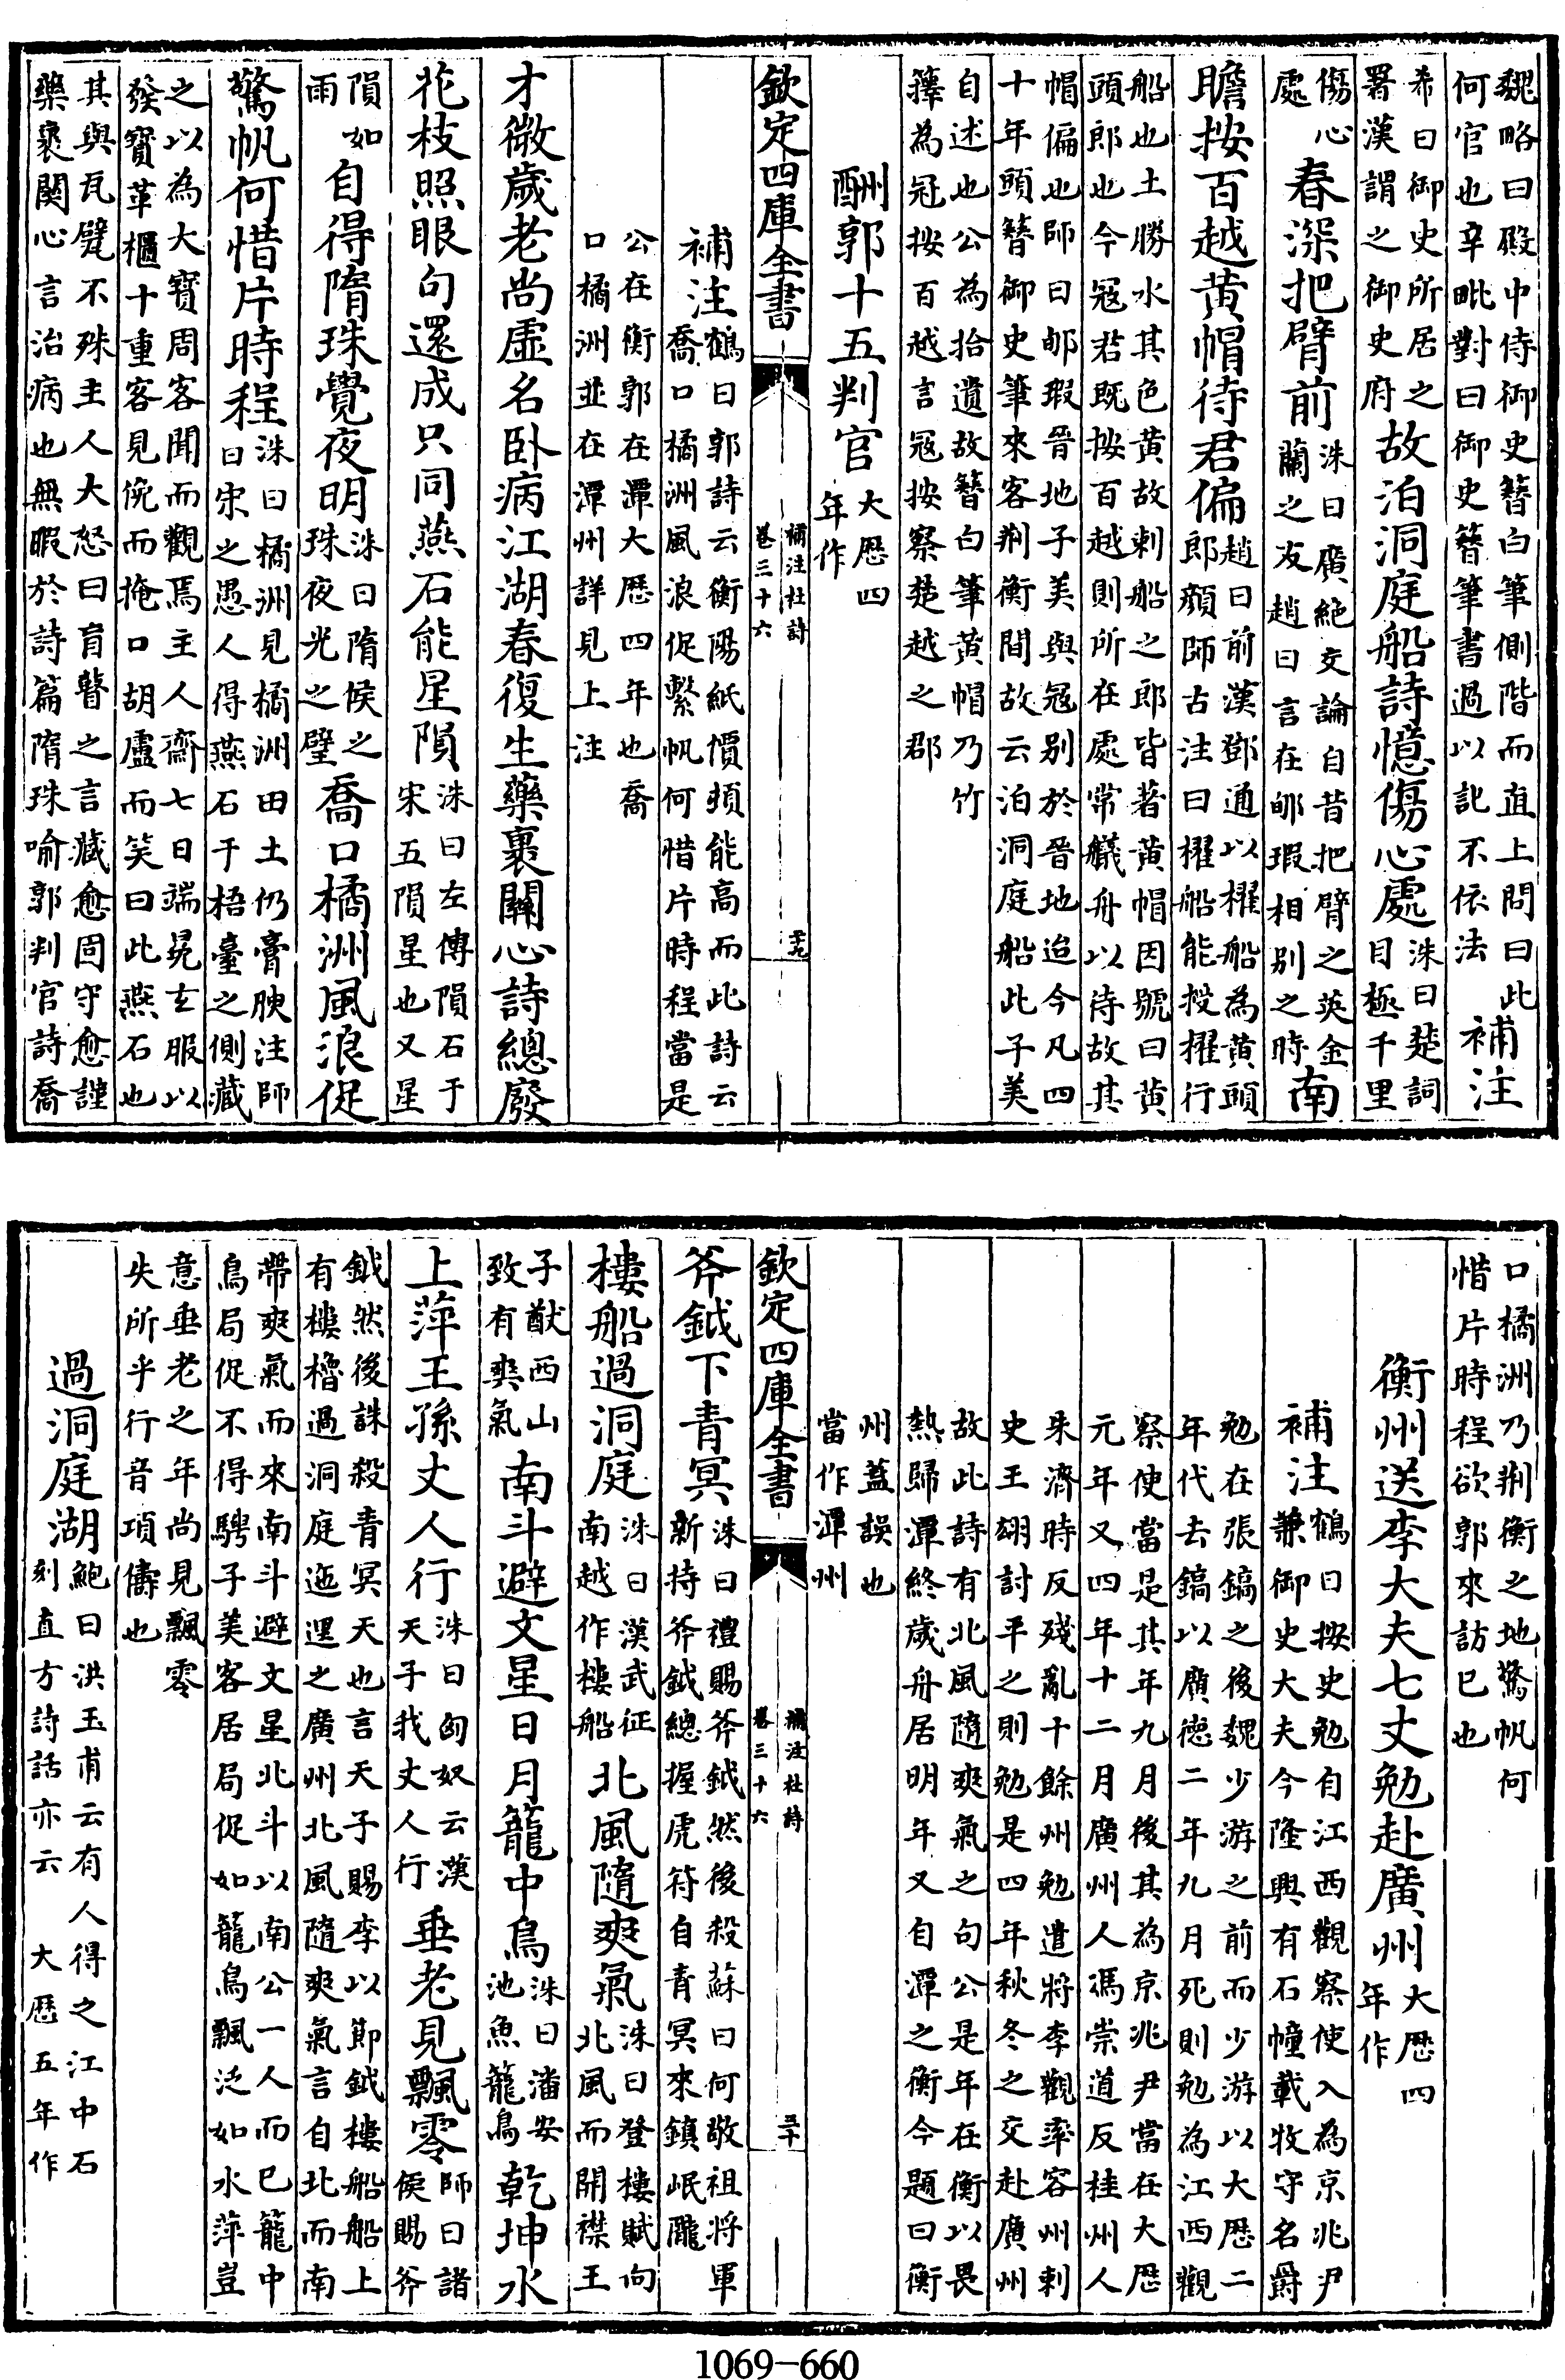 魏略曰殿中侍御史簪白筆側階而直上問曰此
何官也辛毗對曰御史簪筆書過以記不依法
補注
希曰御史所居之
署漢謂之御史府
故泊洞庭船詩憶傷心處
洙曰楚詞
目極千里
傷心
處
春深把臂前
洙曰廣絶交論自昔把臂之英金
蘭之友趙曰言在郇瑕相别之時
南
瞻按百越黄帽待君偏
趙曰前漢鄧通以櫂船為黄頭
郎顔師古注曰櫂船能投櫂行
船也土勝水其色黄故刺船之郎皆著黄帽因號曰黄
頭郎也今冦君既按百越則所在處常艤舟以待故其
帽偏也師曰郇瑕晉地子美與冦别於晉地迨今凡四
十年頭簪御史筆來客荆衡間故云泊洞庭船此子美
自述也公為拾遺故簪白筆黄帽乃竹
籜為冠按百越言冦按察楚越之郡
酬郭十五判官
大厯四
年作
欽定四庫全書
補注杜詩
卷三十六
二十九
補注
鶴曰郭詩云衡陽紙價頻能高而此詩云
喬口橘洲風浪促繫帆何惜片時程當是
公在衡郭在潭大厯四年也喬
口橘洲並在潭州詳見上注
才微歲老尚虚名卧病江湖春復生藥裹關心詩總廢
花枝照眼句還成只同燕石能星隕
洙曰左傳隕石于
宋五隕星也又星
隕如
雨
自得隋珠覺夜明
洙曰隋侯之
珠夜光之璧
喬口橘洲風浪促
驚帆何惜片時程
洙曰橘洲見橘洲田土仍膏腴注師
曰宋之愚人得燕石于梧臺之側藏
之以為大寶周客聞而觀焉主人齋七日端冕玄服以
發寶革櫃十重客見俛而掩口胡盧而笑曰此燕石也
其與瓦甓不殊主人大怒曰肓瞽之言藏愈固守愈謹
藥裹關心言治病也無暇於詩篇隋珠喻郭判官詩喬
口橘洲乃荆衡之地驚帆何
惜片時程欲郭來訪己也
衡州送李大夫七丈勉赴廣州
大厯四
年作
補注
鶴曰按史勉自江西觀察使入為京兆尹
兼御史大夫今隆興有石幢載牧守名爵
勉在張鎬之後魏少游之前而少游以大厯二
年代去鎬以廣徳二年九月死則勉為江西觀
察使當是其年九月後其為京兆尹當在大厯
元年又四年十二月廣州人馮崇道反桂州人
朱濟時反殘亂十餘州勉遣將李觀率容州刺
史王翃討平之則勉是四年秋冬之交赴廣州
故此詩有北風隨爽氣之句公是年在衡以畏
熱歸潭終歲舟居明年又自潭之衡今題曰衡
州蓋誤也
當作潭州
欽定四庫全書
補注杜詩
卷三十六
三十
斧鉞下青冥
洙曰禮賜斧鉞然後殺蘇曰何敬祖将軍
新持斧鉞總握虎符自青冥來鎮岷隴
樓船過洞庭
洙曰漢武征
南越作樓船
北風隨爽氣
洙曰登樓賦向
北風而開襟王
子猷西山
致有爽氣
南斗避文星日月籠中鳥
洙曰潘安
池魚籠鳥
乾坤水
上萍王孫丈人行
洙曰匈奴云漢
天子我丈人行
垂老見飄零
師曰諸
侯賜斧
鉞然後誅殺青冥天也言天子賜李以節鉞樓船上
有樓櫓過洞庭迤邐之廣州北風隨爽氣言自北而南
帶爽氣而來南斗避文星北斗以南公一人而已籠中
鳥局促不得騁子美客居局促如籠鳥飄泛如水萍豈
意垂老之年尚見飄零
失所乎行音項儔也
過洞庭湖
鮑曰洪玉甫云有人得之江中石
刻直方詩話亦云　大厯五年作
1069-660